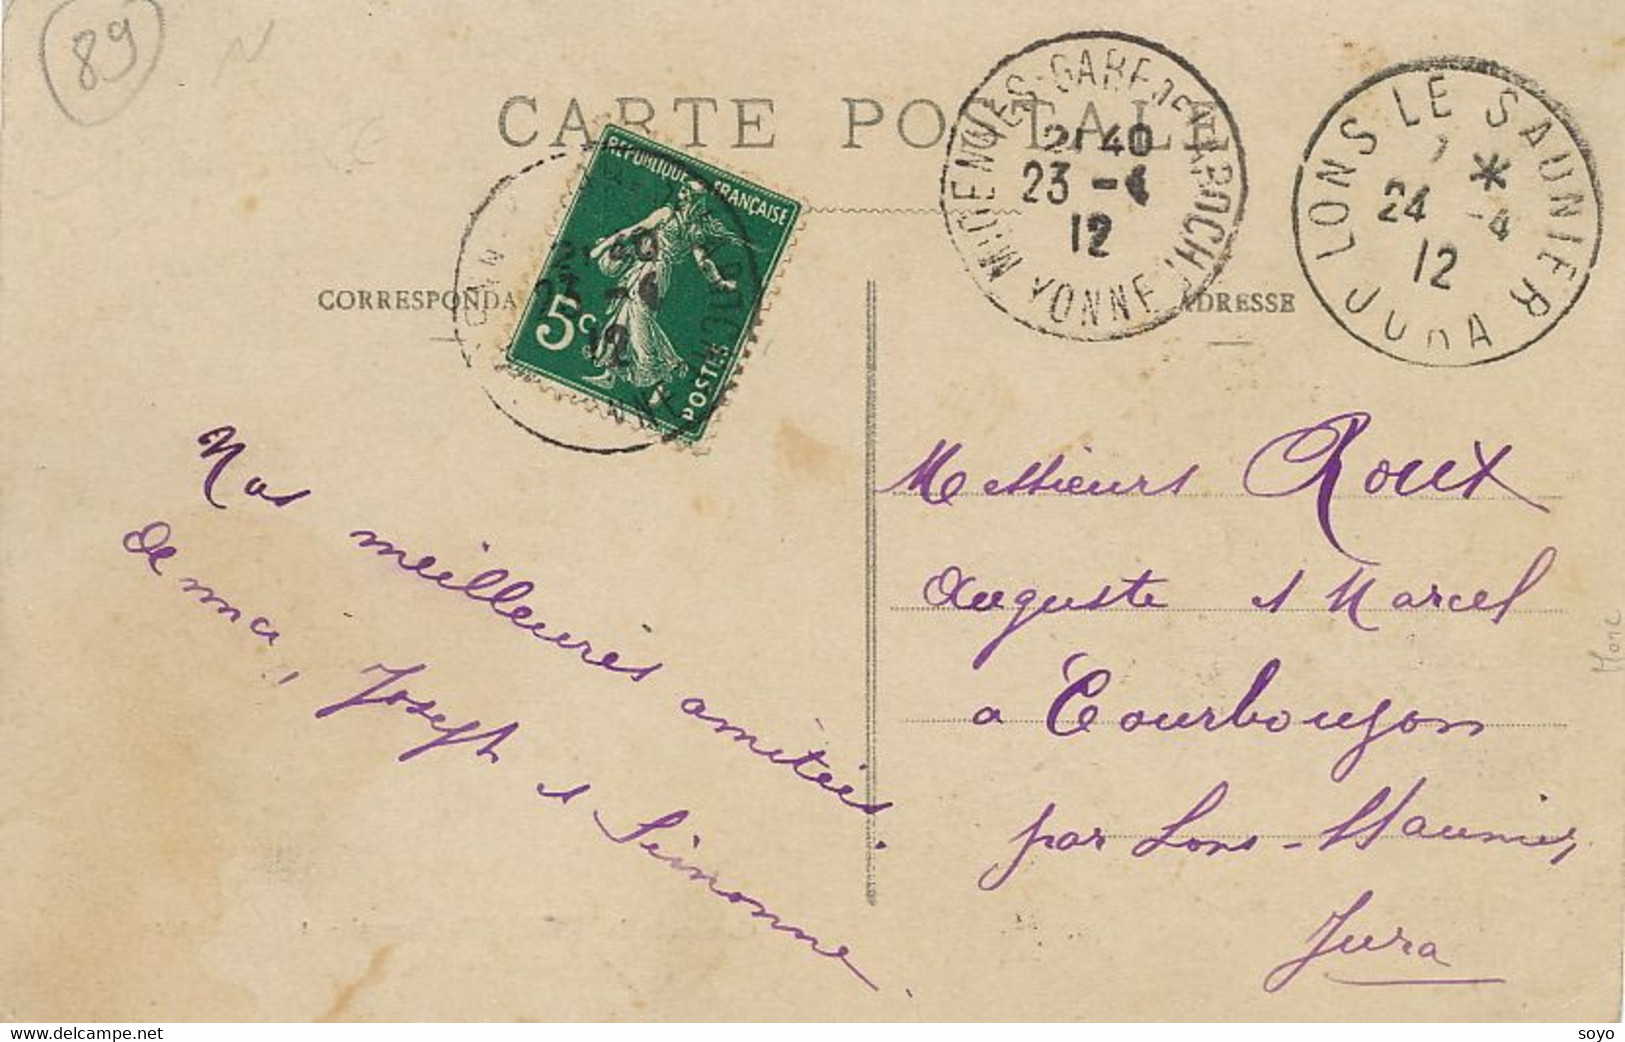 89
CARTE POSTALE
MIGENNES-GARE DE LAROCHE
21 40
23 -4
12
YONNE
LONS LE SAUNIER
7 *
24 -4
12
JURA
REPUBLIQUE FRANÇAISE
21 40
23 -4
12
5c
POSTES
CORRESPONDA
ADRESSE
Nos meilleures amitiés.
Joseph et Simonne
Messieurs Roux
Auguste et Marcel
a Courbouzon
par Lons-Saunier
Jura
soyo